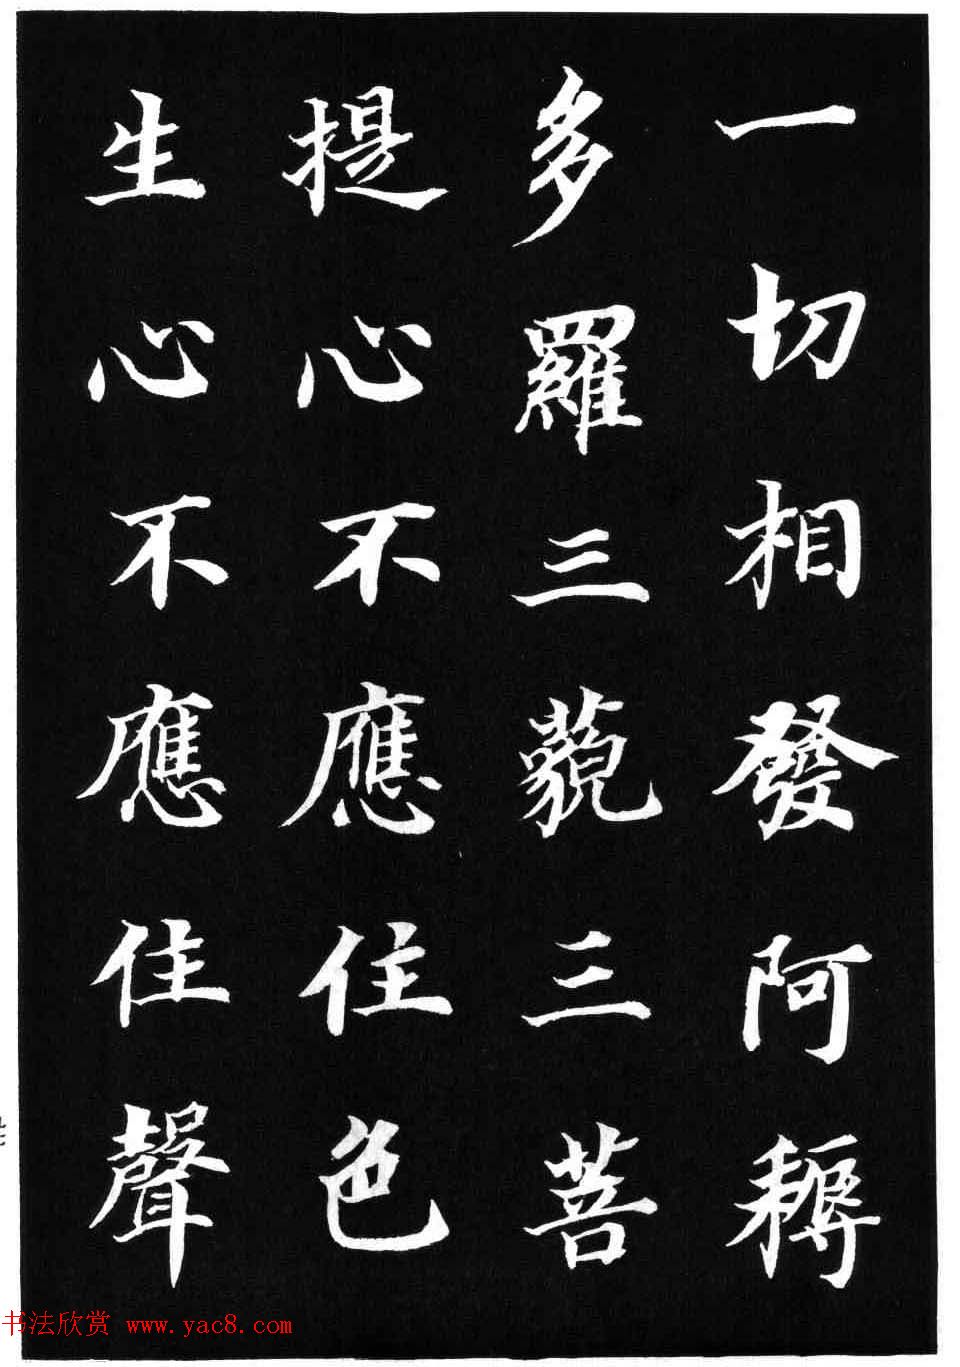 一切相發阿耨
多羅三藐三菩
提心不應住色
生心不應住聲
书法欣赏 www.yac8.com